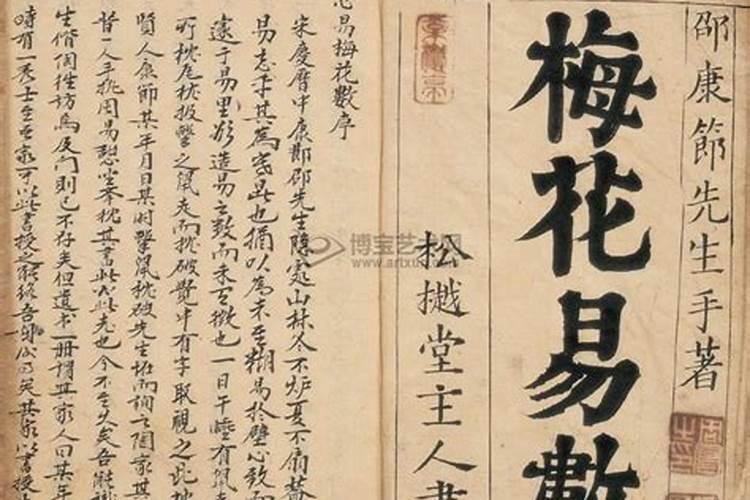 邵康節先生手著
梅花易數
松樾堂主人書
心易梅花數序
宋慶曆中康節邵先生隱處山林冬不炉夏不扇蓋
易志乎其為寒暑也猶以為未至糊易於壁心致而
遂于易理欲造易之數而未有徵也一日午睡有鼠走
所枕瓦枕投擊之鼠走而枕破覺中有字取視之此枕
賢人康節某年月日某時擊鼠枕破先生怪而詢之陶家其
昔一人手執周易憩坐舉枕其書此必此老也今不至久矣吾能識
生偕個往訪焉及門則已不存矣但遺書一冊謂其家人曰某年
時有一秀士至吾家可以此書授之能終吾身矣其家以書授
博宝艺术网
www.artxun.com